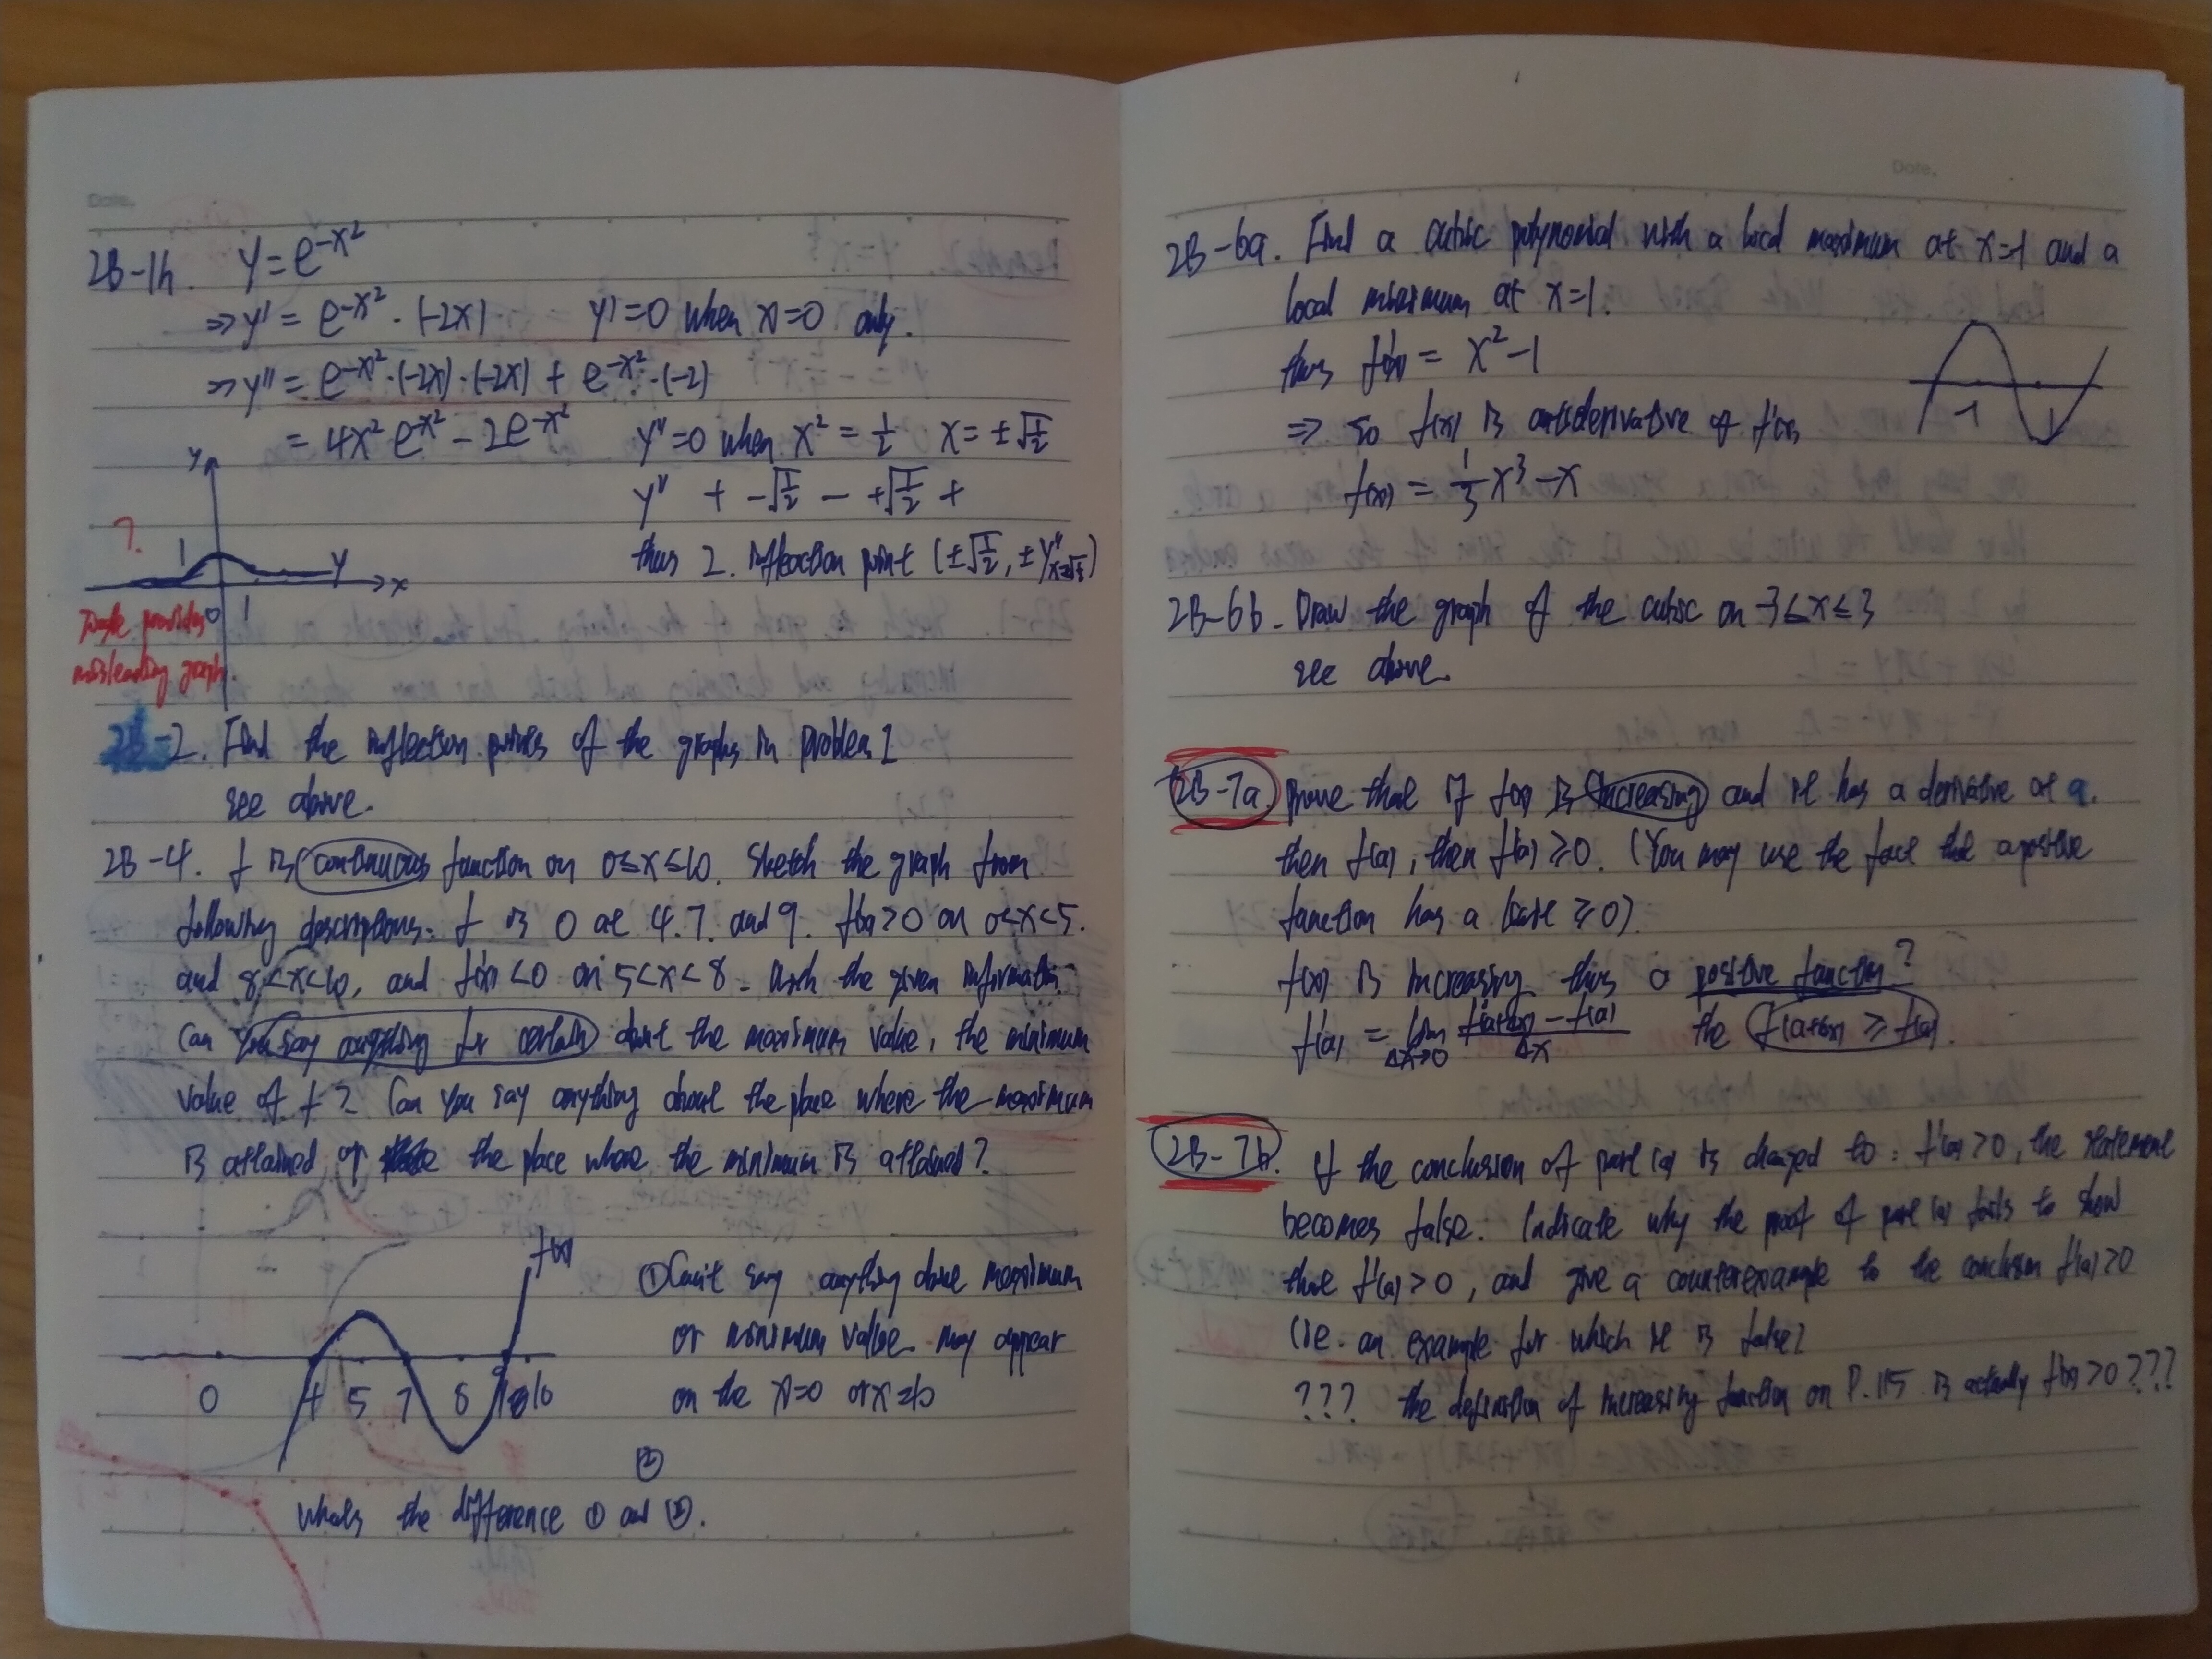 Date.
2B-1h. y = e^{-x²}
⇒ y' = e^{-x²} · (-2x) y'=0 when x=0 only.
⇒ y'' = e^{-x²}·(-2x)·(-2x) + e^{-x²}·(-2)
= 4x² e^{-x²} - 2e^{-x²} y''=0 when x² = 1/2 x = ±√(1/2)
y'' + -√(1/2) - +√(1/2) +
thus 2. inflection point (±√(1/2), ±y''
y
?
1
y
x
0 1
provides
misleading graph.
2B-2. Find the inflection points of the graphs in problem 1
see above.
2B-4. f is continuous function on 0≤x≤10. Sketch the graph from
following descriptions: f is 0 at 4. 7. and 9. f'(x)>0 on 0<x<5.
and 8<x<10, and f'(x)<0 on 5<x<8. With the given information.
Can you say anything for certain about the maximum value, the minimum
value of f? Can you say anything about the place where the maximum
is attained, or the place where the minimum is attained?
f(x)
0 4 5 7 8 9 10
① Can't say anything about maximum
or minimum value. may appear
on the x=0 or x=10
②
What's the difference ① and ②.
Date.
2B-6a. Find a cubic polynomial with a local maximum at x=-1 and a
local minimum at x=1.
thus f'(x) = x²-1
⇒ so f(x) is antiderivative of f'(x)
f(x) = 1/3 x³-x
-1 1
2B-6b. Draw the graph of the cubic on -3≤x≤3
see above.
2B-7a. Prove that if f(x) is increasing and it has a derivative at a.
then f'(a), then f'(a) ≥0. (You may use the fact that a positive
function has a limit ≥0).
f(x) is increasing thus a positive function?
f'(a) = lim Δx→0 f(a+Δx) - f(a) / Δx the f(a+Δx) ≥ f(a).
2B-7b. If the conclusion of part (a) is changed to: f'(a)>0, the statement
becomes false. Indicate why the proof of part (a) fails to show
that f'(a)>0, and give a counterexample to the conclusion f'(a)>0
(ie. an example for which it is false)
??? the definition of increasing function on P.115 is actually f'(x)>0???